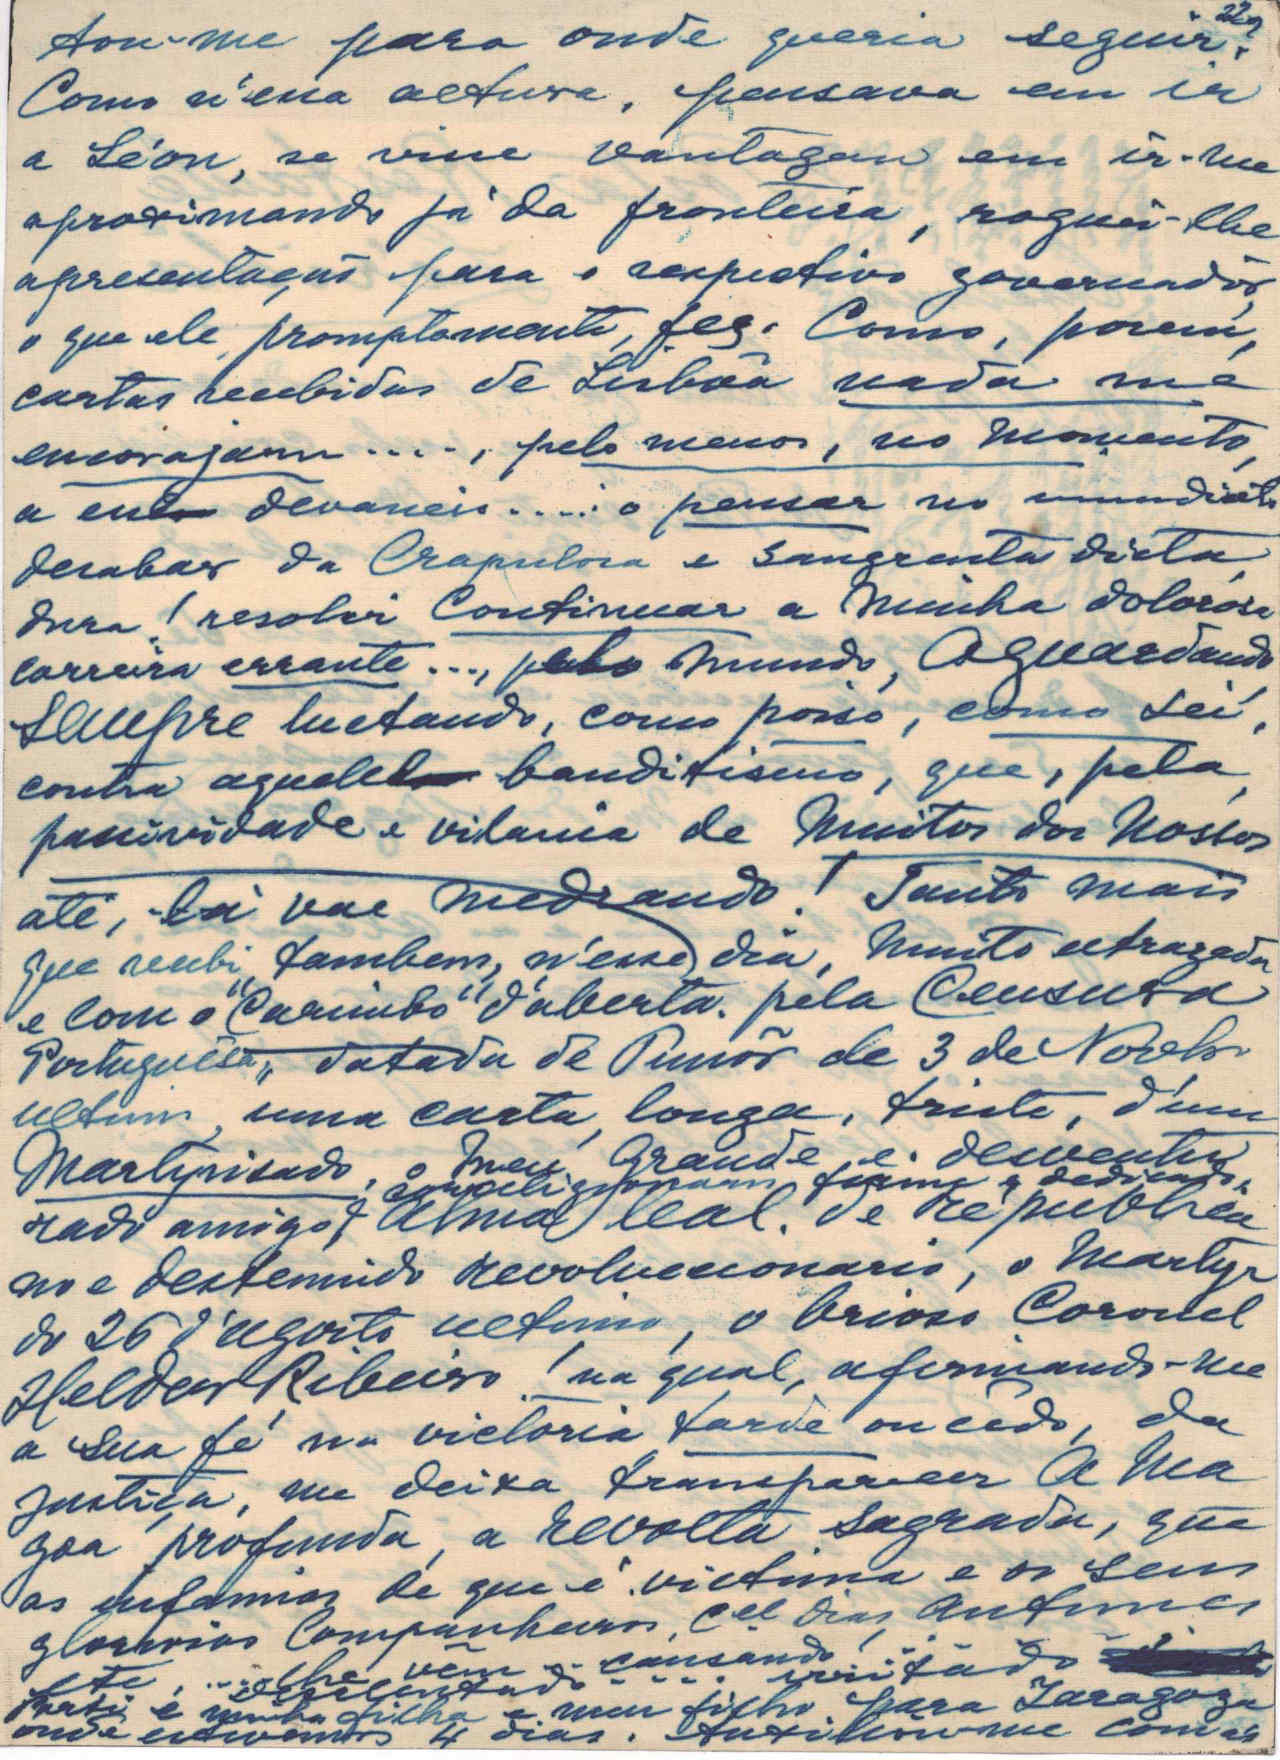 229
tou-me para onde queria seguir.
Como n'essa altura, pensava em ir
a Léon, se visse vantagem em ir-me
aproximando já da fronteira, roguei-lhe
apresentação para o respectivo governadôr,
o que ele, promptamente, fez. Como, porem,
cartas recebidas de Lisbôa nada me
encorajam ...., pelo menos, no momento,
a devaneio ..... o pensar no immediato
desabar da Crapulosa e sangrenta dicta
dura! resolvi Continuar a minha dolorosa
carreira errante ..., pelo mundo, Aguardando
sempre luctando, como posso, como sei,
contra aquele banditismo, que, pela
passividade e vilania de Muitos dos Nossos
até, lá vae medrando! Tanto mais
que recebi, tambem, n'esse dia, muito atrazada
e com o "Carimbo" d'aberta pela Censura
Portuguêsa", datada de Timôr de 3 de Novbr
ultimo, uma carta, longa, triste, d'um
Martyrisado, o meu grande e desventu
correligionario firme e dedicado,
rado amigo, Alma leal de republica
no e destemido revoluccionario, o Martyr
do 26 d'agosto ultimo, o brioso Coronel
Helder Ribeiro! na qual, afirmando-me
a sua fé na victoria, tarde ou cêdo, da
justiça, me deixa transparecer a ma
goa profunda, a revolta sagrada, que
as infamias de que é victima e os seus
gloriosos Companheiros, Cel Dias Antunes
etc, ... lhe vêm causando!
Parti e minha filha e meu filho para Zaragoza
onde estivemos 4 dias. Auxiliou-me com as